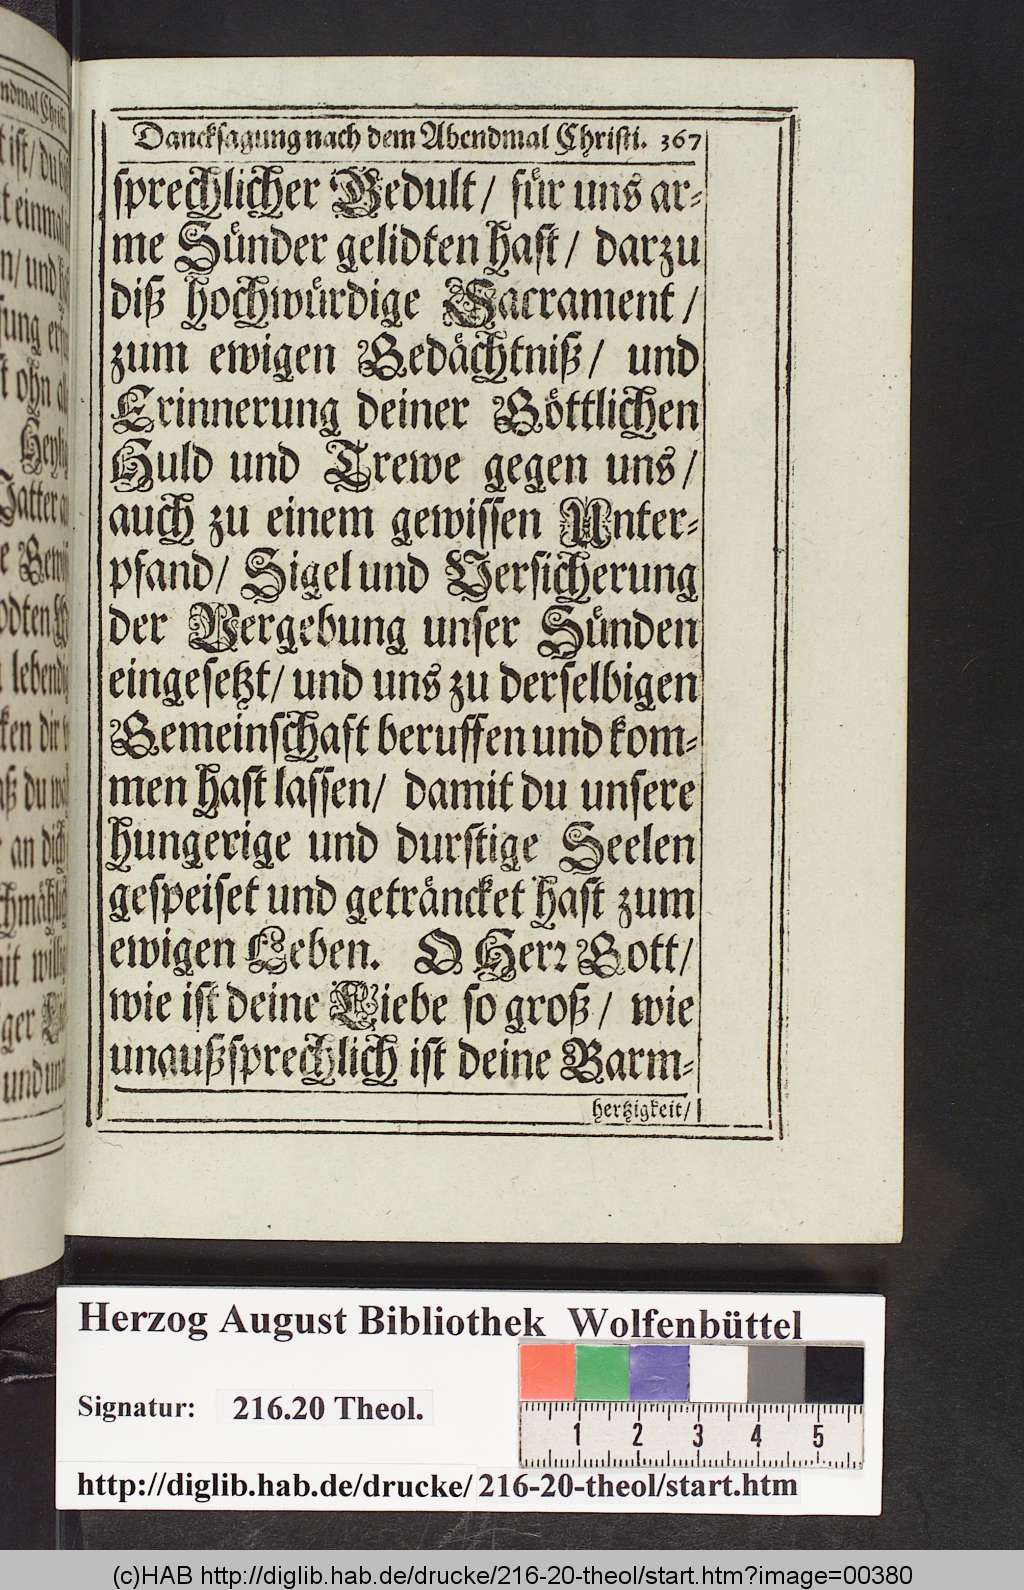 Dancksagung nach dem Abendmal Christi. 367
sprechlicher Gedult / für uns ar-
me Sünder gelidten hast / darzu
diß hochwürdige Sacrament /
zum ewigen Gedächtniß / und
Erinnerung deiner Göttlichen
Huld und Trewe gegen uns /
auch zu einem gewissen Unter-
pfand / Sigel und Versicherung
der Vergebung unser Sünden
eingesetzt / und uns zu derselbigen
Gemeinschaft beruffen und kom-
men hast lassen / damit du unsere
hungerige und durstige Seelen
gespeiset und geträncket hast zum
ewigen Leben. O Herr Gott /
wie ist deine Liebe so groß / wie
unaußsprechlich ist deine Barm-
hertzigkeit /
Herzog August Bibliothek Wolfenbüttel
Signatur: 216.20 Theol.
1 2 3 4 5
http://diglib.hab.de/drucke/ 216-20-theol/start.htm
(c)HAB http://diglib.hab.de/drucke/216-20-theol/start.htm?image=00380